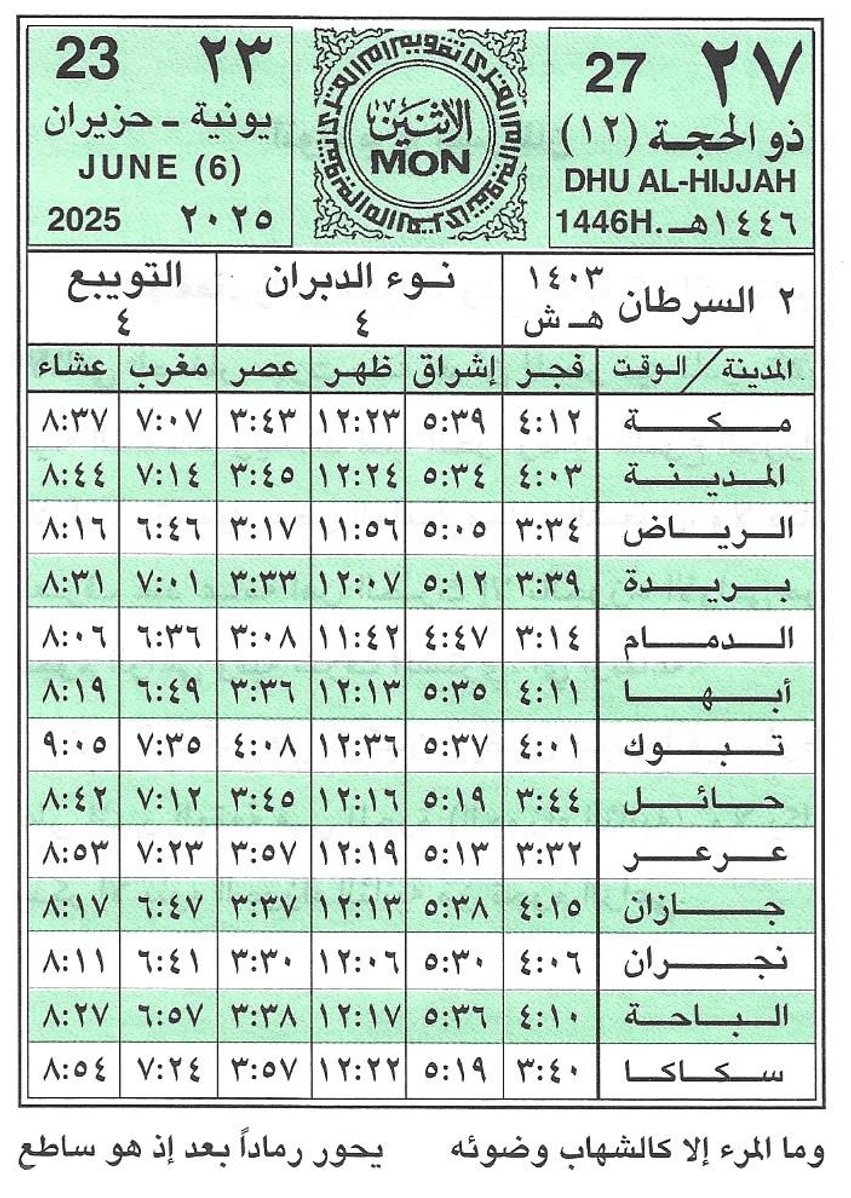 ٢٧ 27
ذو الحجـة (١٢)
DHU AL-HIJJAH
1446H. ١٤٤٦هـ
تقويم أم القرى
الاثنين
MON
23 ٢٣
يونية - حزيران
JUNE (6)
2025 ٢٠٢٥
٢ السرطان ١٤٠٣ هـ ش
نـوء الدبران ٤
التويبع ٤
المدينة / الـوقت فجـر إشراق ظهـر عصـر مغرب عشاء
مـكـة ٤:١٢ ٥:٣٩ ١٢:٢٣ ٣:٤٣ ٧:٠٧ ٨:٣٧
المـديـنـة ٤:٠٣ ٥:٣٤ ١٢:٢٤ ٣:٤٥ ٧:١٤ ٨:٤٤
الـريـاض ٣:٣٤ ٥:٠٥ ١١:٥٦ ٣:١٧ ٦:٤٦ ٨:١٦
بـريـدة ٣:٣٩ ٥:١٢ ١٢:٠٧ ٣:٣٣ ٧:٠١ ٨:٣١
الـدمـام ٣:١٤ ٤:٤٧ ١١:٤٢ ٣:٠٨ ٦:٣٦ ٨:٠٦
أبـهـا ٤:١١ ٥:٣٥ ١٢:١٣ ٣:٣٦ ٦:٤٩ ٨:١٩
تـبـوك ٤:٠١ ٥:٣٧ ١٢:٣٦ ٤:٠٨ ٧:٣٥ ٩:٠٥
حـائـل ٣:٤٤ ٥:١٩ ١٢:١٦ ٣:٤٥ ٧:١٢ ٨:٤٢
عـرعـر ٣:٣٢ ٥:١٣ ١٢:١٩ ٣:٥٧ ٧:٢٣ ٨:٥٣
جـازان ٤:١٥ ٥:٣٨ ١٢:١٣ ٣:٣٧ ٦:٤٧ ٨:١٧
نجـران ٤:٠٦ ٥:٣٠ ١٢:٠٦ ٣:٣٠ ٦:٤١ ٨:١١
الـبـاحـة ٤:١٠ ٥:٣٦ ١٢:١٧ ٣:٣٨ ٦:٥٧ ٨:٢٧
سـكـاكـا ٣:٤٠ ٥:١٩ ١٢:٢٢ ٣:٥٧ ٧:٢٤ ٨:٥٤
وما المرء إلا كالشهاب وضوئه يحور رماداً بعد إذ هو ساطع